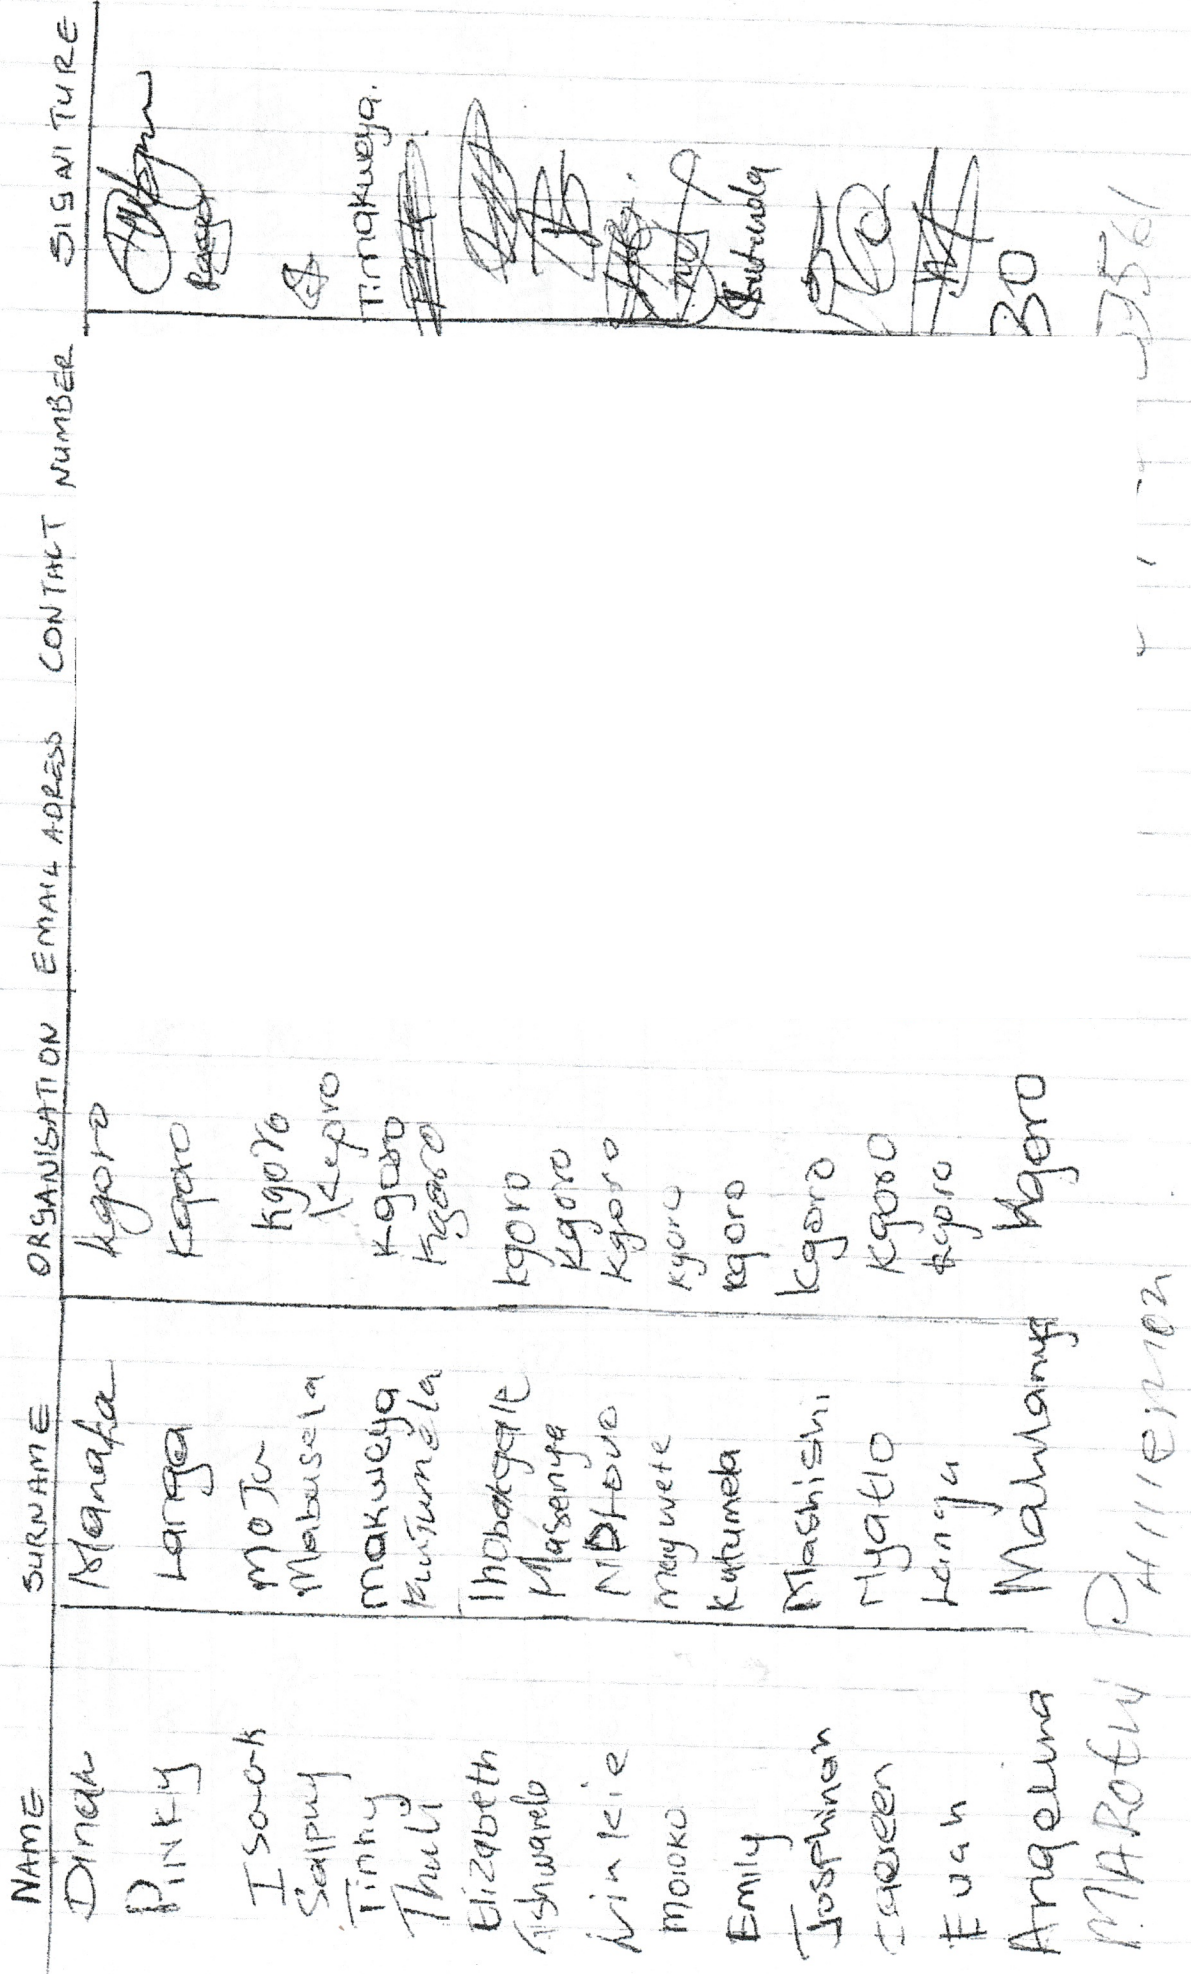 NAME SURNAME ORGANISATION EMAIL ADRESS CONTACT NUMBER SIGNITURE
Dinah Manaka kgoro
Pinky Langa Kgoro
Isaak Moju kgoro
Salpny Mabusela
Tinny makweya kgoro Tinakweya.
Thuli Kutumela Kgoro
Elizabeth Thobakgale kgoro
Tshwarelo Masenya Kgoro
NDHovo Kgoro
Moroko kgoro
Emily Kutumela kgoro Kutumela
Josphinah Mashishi Kgoro
Kgoro
Evah Langa kgoro
Angelina Mahlangu Kgoro
MAROthi